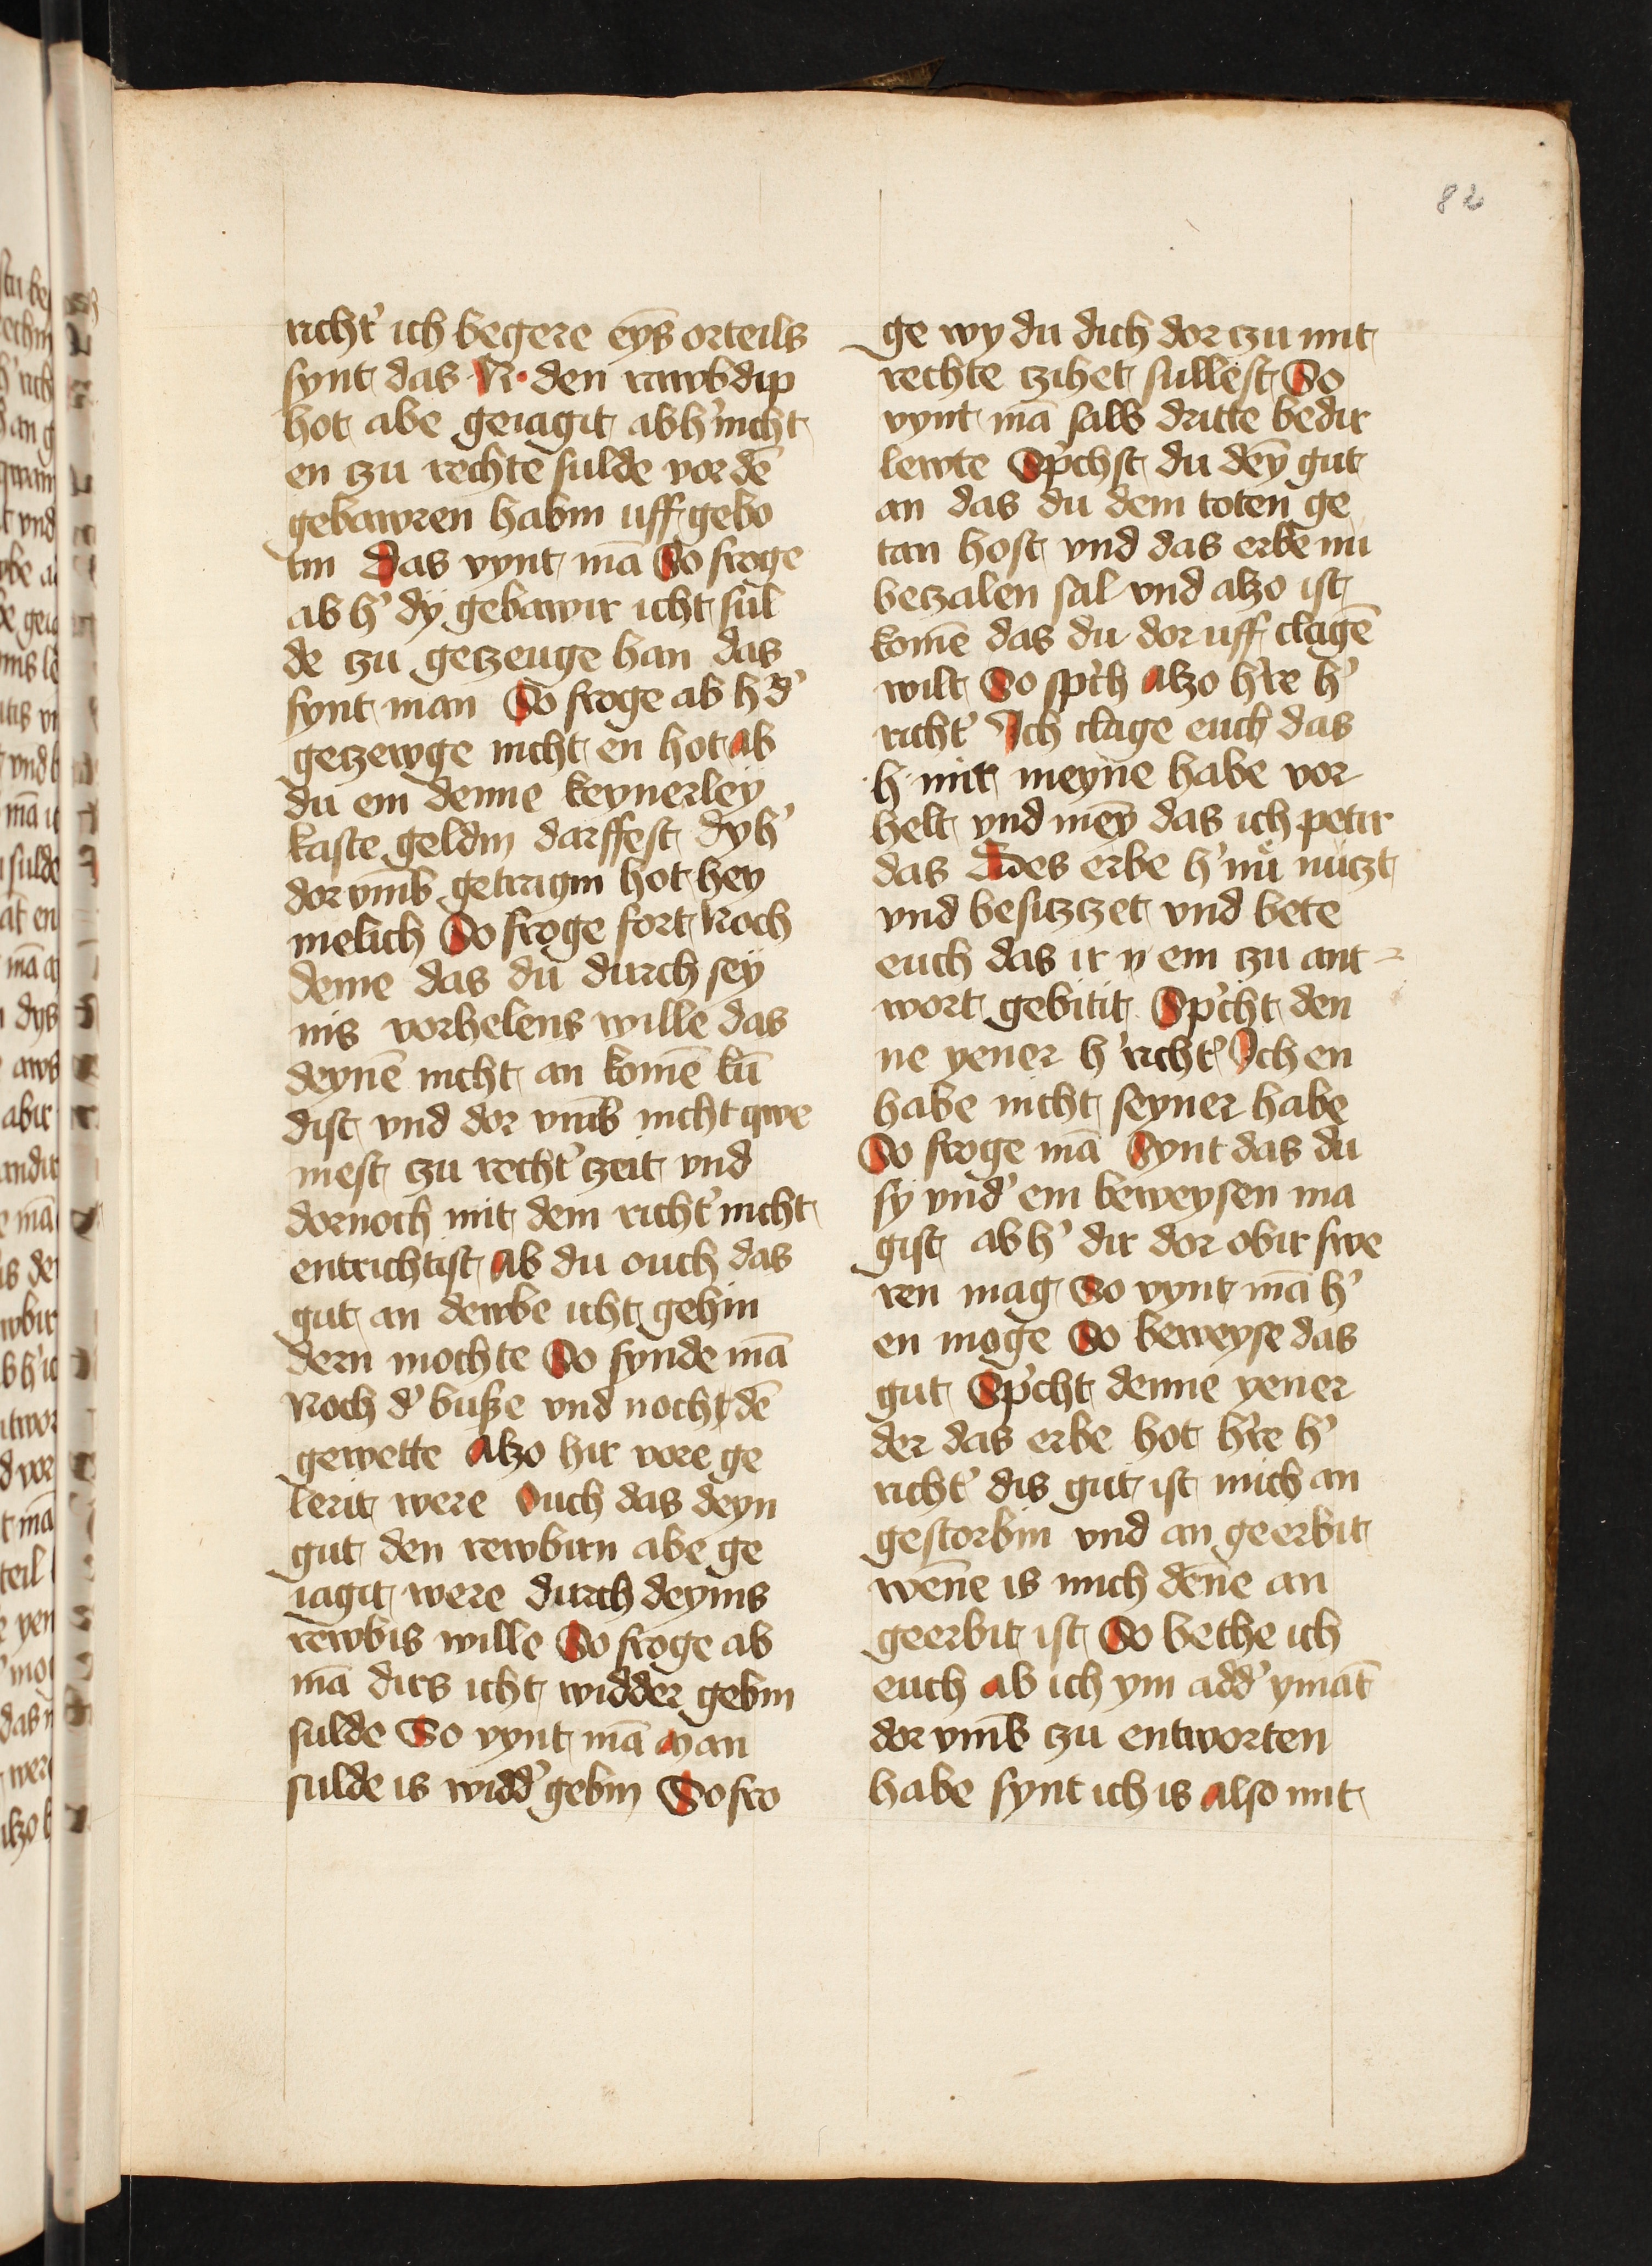 82
richt' ich begere eyn̄s orteils
synt das ·N· den rawbdip
hot abe geiagit ab h' nicht
en czu rechte sulde vor dē
gebawren habin uff gebo
tin Das vynt mā So froge
ab h' dÿ gebawir icht sul
de czu geczeuge han das
synt man So froge ab h' d'
geczewge nicht en hot ab
du em denne keynerley
kaste geldin darffest dy h'
dor vm̄b getragin hot hey
melich So froge fort Noch
deme das du durch sey
nis vorhelens wille das
deynē nicht an komē kū
dist vnd dor vm̄b nicht qwe
mest czu recht' czeit vnd
dornoch mit dem richt' nicht
entrichtist ab du ouch das
gut an dewbe icht gehin
dern mochte So synde mā
Noch d' busze vnd noch dē
gewette Alzo hir vore ge
lerit were Ouch das deyn
gut den rewbirn abe ge
iagit were durch deynis
rewbis wille So froge ab
mā dirs icht widder gebin
sulde So vynt mā Man
sulde is widd' gebin So fro
ge wy du dich dor czu mit
rechte czihet sullest So
vynt mā salb dritte bedir
lewte Sp'chst du deȳ gut
an das du dem toten ge
tan host vnd das erbe nu
beczalen sal vnd alzo ist
komē das du dor uff clagē
wilt So sp'ch Alzo h're h'
richt' Ich clage euch das
·h· mir meyne habe vor
helt vnd meȳ das ich petir
das Des erbe h' nu nuczt
vnd besiczczet vnd bete
euch das ir y em czu ant
wort gebitit Sp'cht den
ne yener h' richt' Ich en
habe nicht seyner habe
So froge mā Synt das du
sy vnd' em beweysen ma
gist ab h' dir dor obir swe
ren mag So vynt mā h'
en moge So beweyse das
gut Sp'cht denne yener
der das erbe hot h're h'
richt' dis gut ist mich an
gestorbin vnd an geerbit
wēne is mich dēne an
geerbit ist So bethe ich
euch ab ich ym add' ymāt
dor vm̄b czu entworten
habe synt ich is also mit